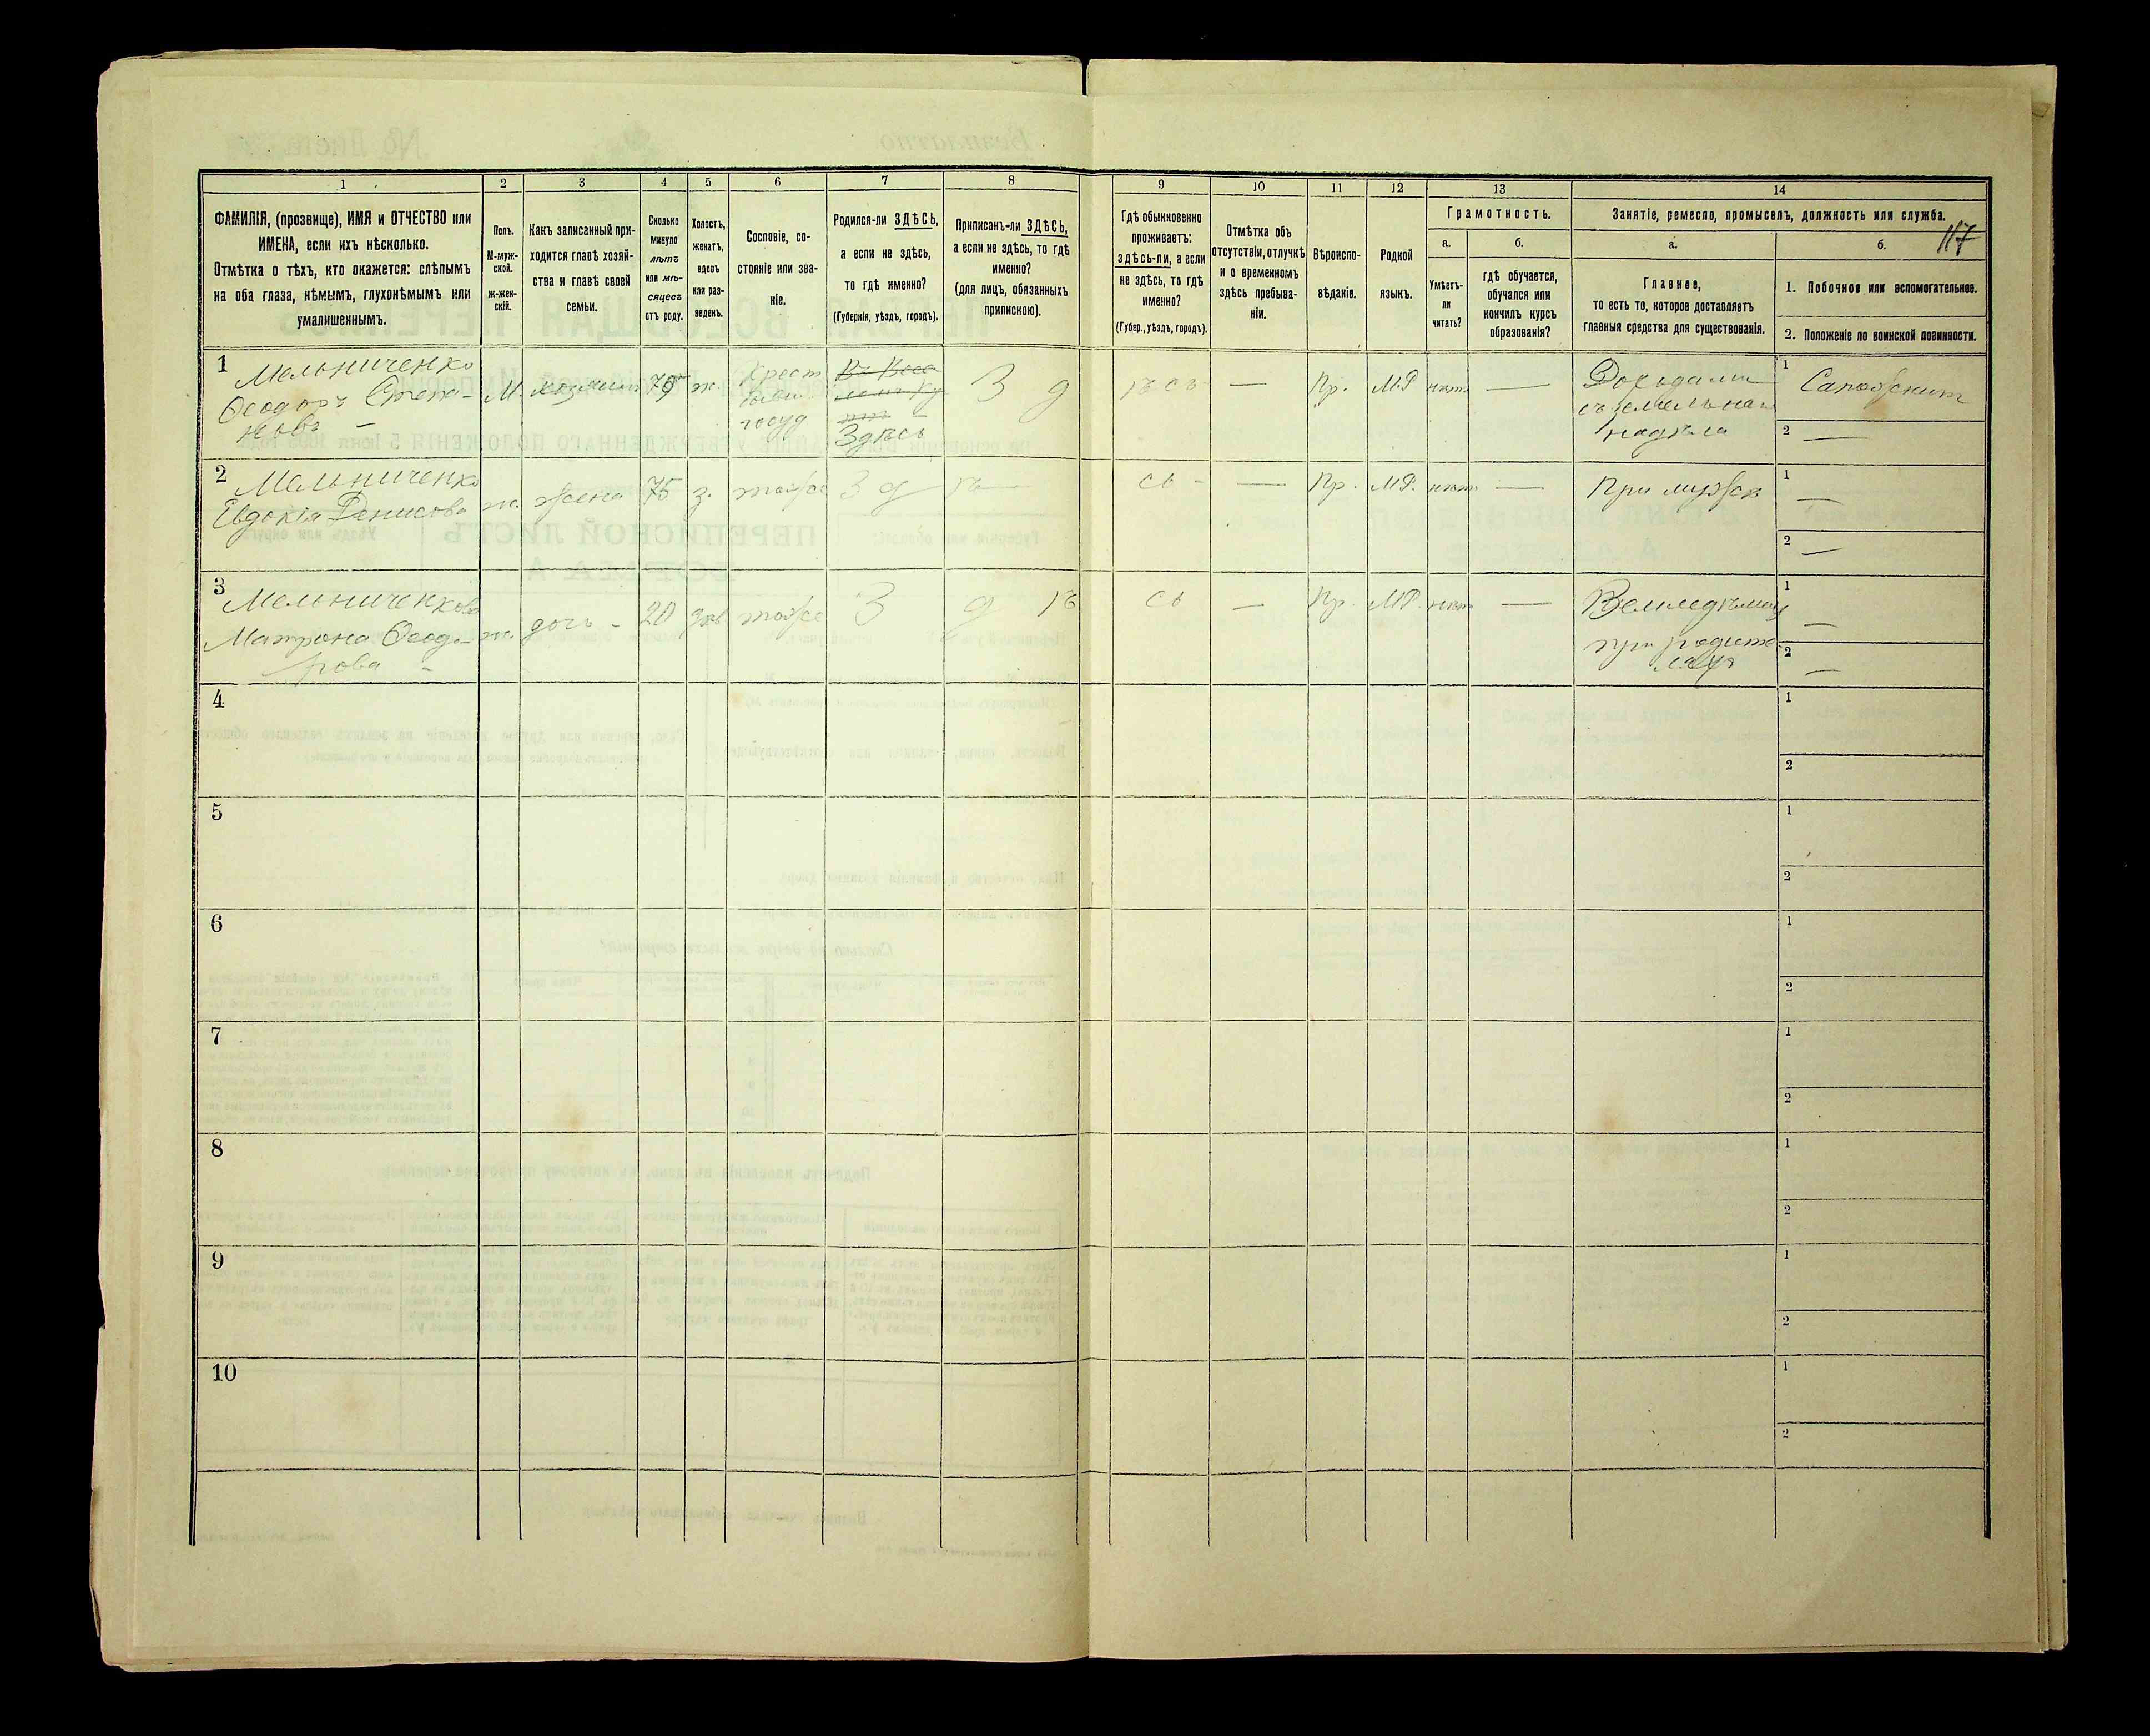 1 2 3 4 5 6 7 8 9 10 11 12 13 14
ФАМИЛІЯ, (прозвище), ИМЯ и ОТЧЕСТВО или
ИМЕНА, если ихъ нѣсколько.
Отмѣтка о тѣхъ, кто окажется: слѣпымъ
на оба глаза, нѣмымъ, глухонѣмымъ или
умалишеннымъ.
Полъ.
М-муж-
ской.
ж-жен-
скій.
Какъ записанный при-
ходится главѣ хозяй-
ства и главѣ своей
семьи.
Сколько
минуло
лѣтъ
или мѣ-
сяцевъ
отъ роду.
Холостъ,
женатъ,
вдовъ
или раз-
веденъ.
Сословіе, со-
стояніе или зва-
ніе.
Родился-ли ЗДѢСЬ,
а если не здѣсь,
то гдѣ именно?
(Губернія, уѣздъ, городъ).
Приписанъ-ли ЗДѢСЬ,
а если не здѣсь, то гдѣ
именно?
(для лицъ, обязанныхъ
припискою).
Гдѣ обыкновенно
проживаетъ:
здѣсь-ли, а если
не здѣсь, то гдѣ
именно?
(Губер., уѣздъ, городъ).
Отмѣтка объ
отсутствіи, отлучкѣ
и о временномъ
здѣсь пребыва-
ніи.
Вѣроиспо-
вѣданіе.
Родной
языкъ.
Грамотность.
а.
Умѣетъ-
ли
читать?
б.
гдѣ обучается,
обучался или
кончилъ курсъ
образованія?
Занятіе, ремесло, промыселъ, должность или служба.
117
а.
Главное,
то есть то, которое доставляетъ
главныя средства для существованія.
б.
1. Побочное или вспомогательное.
2. Положеніе по воинской повинности.
1
Мельниченко
Ѳеодоръ Степа-
новъ –
М.
хозяинъ
ж.
Крест
госуд
Здѣсь
З д ѣсь
—
Пр.
М.Р
нѣтъ
—
Доходами
съ земельнаго
надѣла
1
2 —
2
Мельниченко
Евдокія Денисова
ж.
жена
75
з.
тоже
З д ѣ сь -
—
Пр.
МР.
нѣтъ
—
При мужѣ
1 —
2 —
3
Мельниченкова
Матрона Ѳеодо-
рова -
ж.
дочь -
20
дѣв
тоже
З д ѣ сь
—
Пр.
МР.
нѣтъ
—
при родите-
ляхъ
1 —
2 —
4
1
2
5
1
2
6
1
2
7
1
2
8
1
2
9
1
2
10
1
2